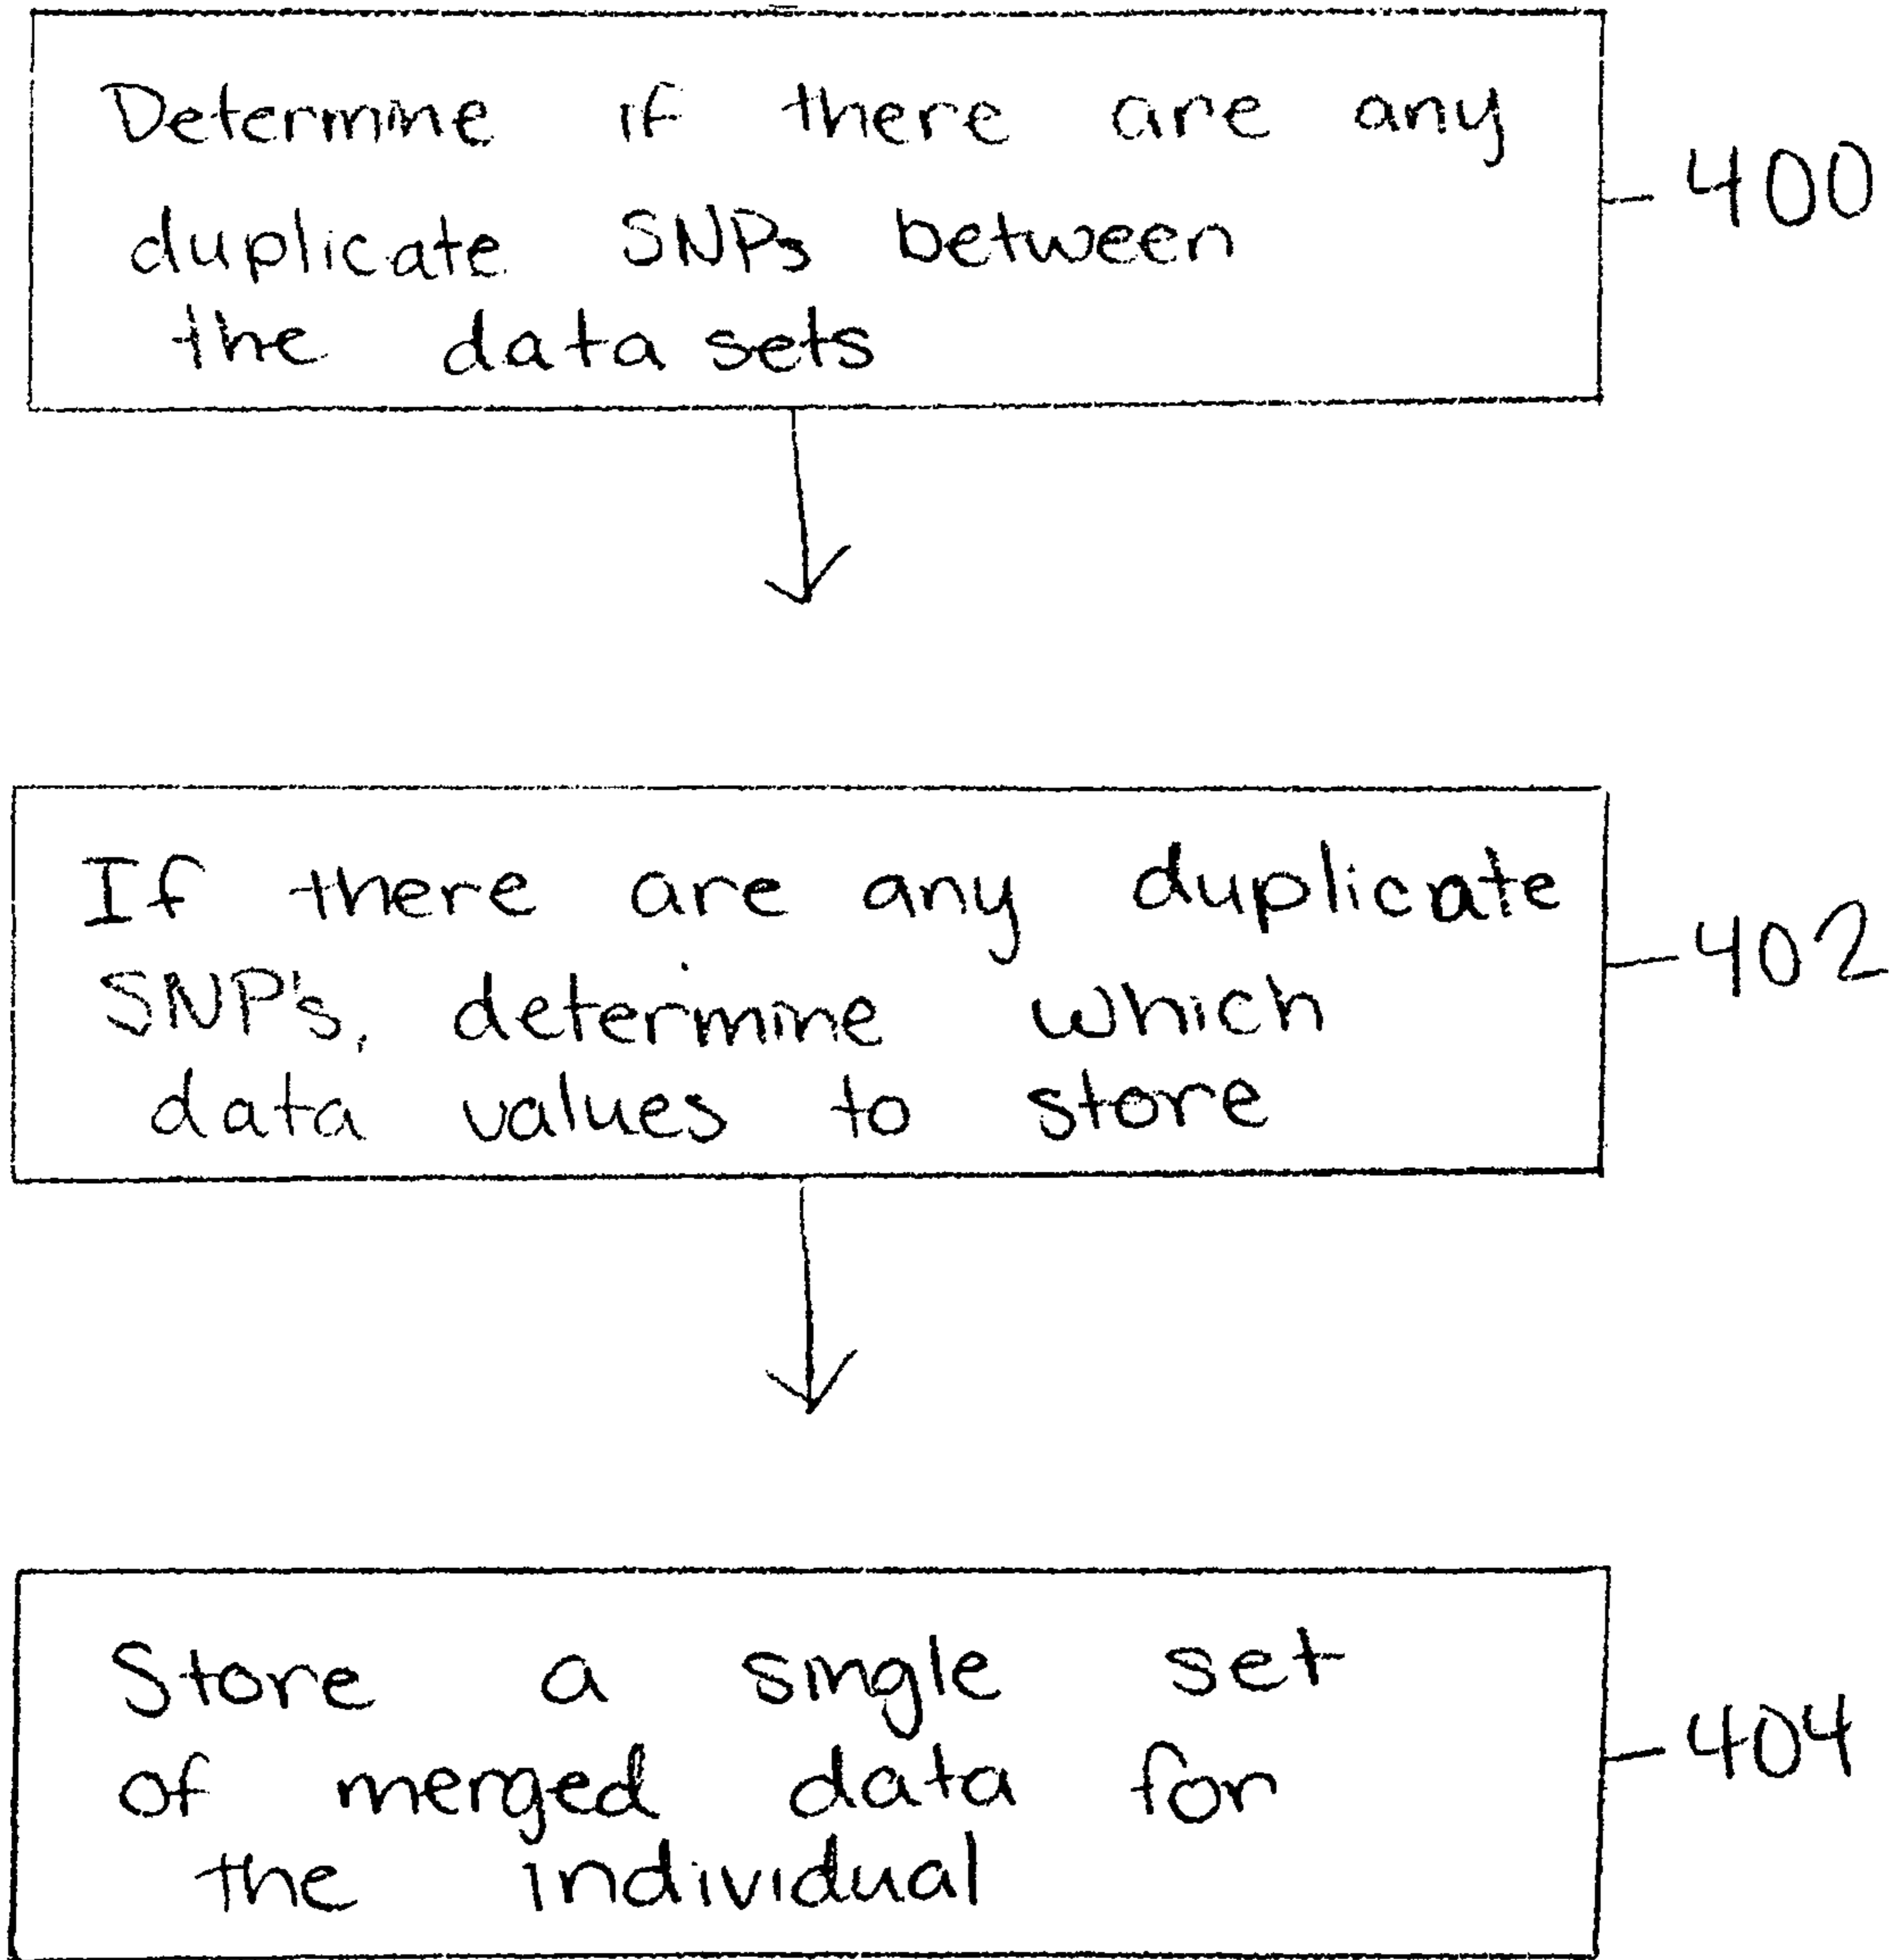 Determine if there are any
duplicate SNPs between
the data sets
400
If there are any duplicate
SNP's, determine which
data values to store
402
Store a single set
of merged data for
the individual
404